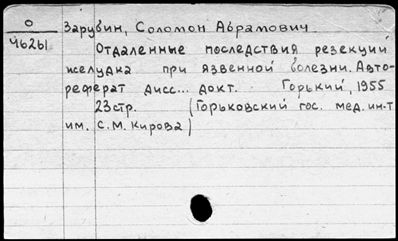 О
46261
Зарубин, Соломон Абрамович
Отдаленные последствия резекций
желудка при язвенной болезни. Авто-
реферат дисс... докт. Горький, 1955
23стр. (Горьковский гос. мед. ин-т
им. С.М. Кирова)